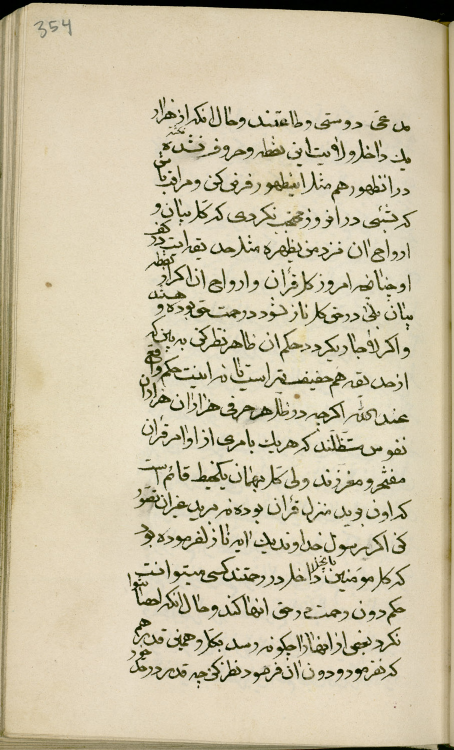 354
مدعی دوستی و طاعتند و حال آنکه از هزار
یک داخل ولایت این نقطه و حروف نشده
در آن ظهور هم مثل این ظهور فرض کن و مراقب باش
که بشیئی در آن روز محتجب نگردی که کل بیان و
ارواح آن نزد من یظهره مثل حدیقه است در کف
او چنانچه امروز کل قرآن و ارواح آن اگر از نقطه
بیان بلی در حق کل نازل شود در رحمت حق بوده و هستند
و اگر لا جاری گردد حکم آن ظاهر نظر کن به بین که
از حدیقه هم خفیفتر است تا نه اینست حکم واقعی
عند الله اگر چه در ظاهر حرفی هزاران هزاران
نفوس مستظلند که هر یک بامری از اوامر قرآن
مفتخر و معززند ولی کل بهمان یک خیط قائم است
که اون بوده منزل قرآن بوده نه مرید غیر آن تصور
کن اگر رسول خداوند یک آیه نازل فرموده بود
که کل مؤمنین با نجیل داخل در رحمتند کسی میتوانست
حکم دون رحمت در حق آنها کند و حال آنکه احصا نتوان
نکرد بعضی از آنها را چگونه رسد بکل و همین قدر هم
که نفرمود و دون آن فرمود نظر کن چه قدر در حد خود